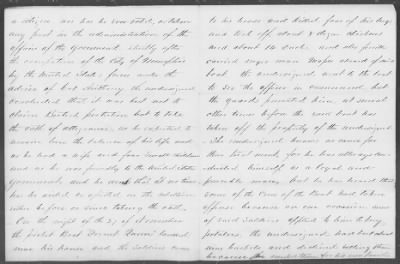 a citizen, nor has he ever voted, or taken
any part in the administration of the
affairs of the Government. shortly after
the occupation of the City of Memphis
by the United States forces under the
advice of Col Anthony the undersigned
concluded that it was best not to
claim British protection but to take
the oath of allegiance, as he expected to
remain here the balance of his life and
as he had a wife and four small children
and as he was friendly to the United States
Government, and he
has he aided or in the rebellion
either before or since taking the oath.
On the night of the 29 of November
the Boat landed
near his house and the soldiers came
to his house and killed four of his hogs
and took off about 3 dozen chickens
and about 16 ducks and also forcibly
carried negro man Major aboard of said
boat. the undersigned went to the boat
to see the officer in command but
the guards prevented him, at several
other times before the said boat has
taken off the property of the undersigned
The undersigned knows no cause for
their treatment, for he has always con-
ducted himself as a loyal and
peaceable man, but he has heard that
some of the crew of the Boat had taken
offence because on one occasion some
of said soldiers offered to him to buy
potatoes. the undersigned had but about
nine bushels and declined selling them
because he wanted them for his own family